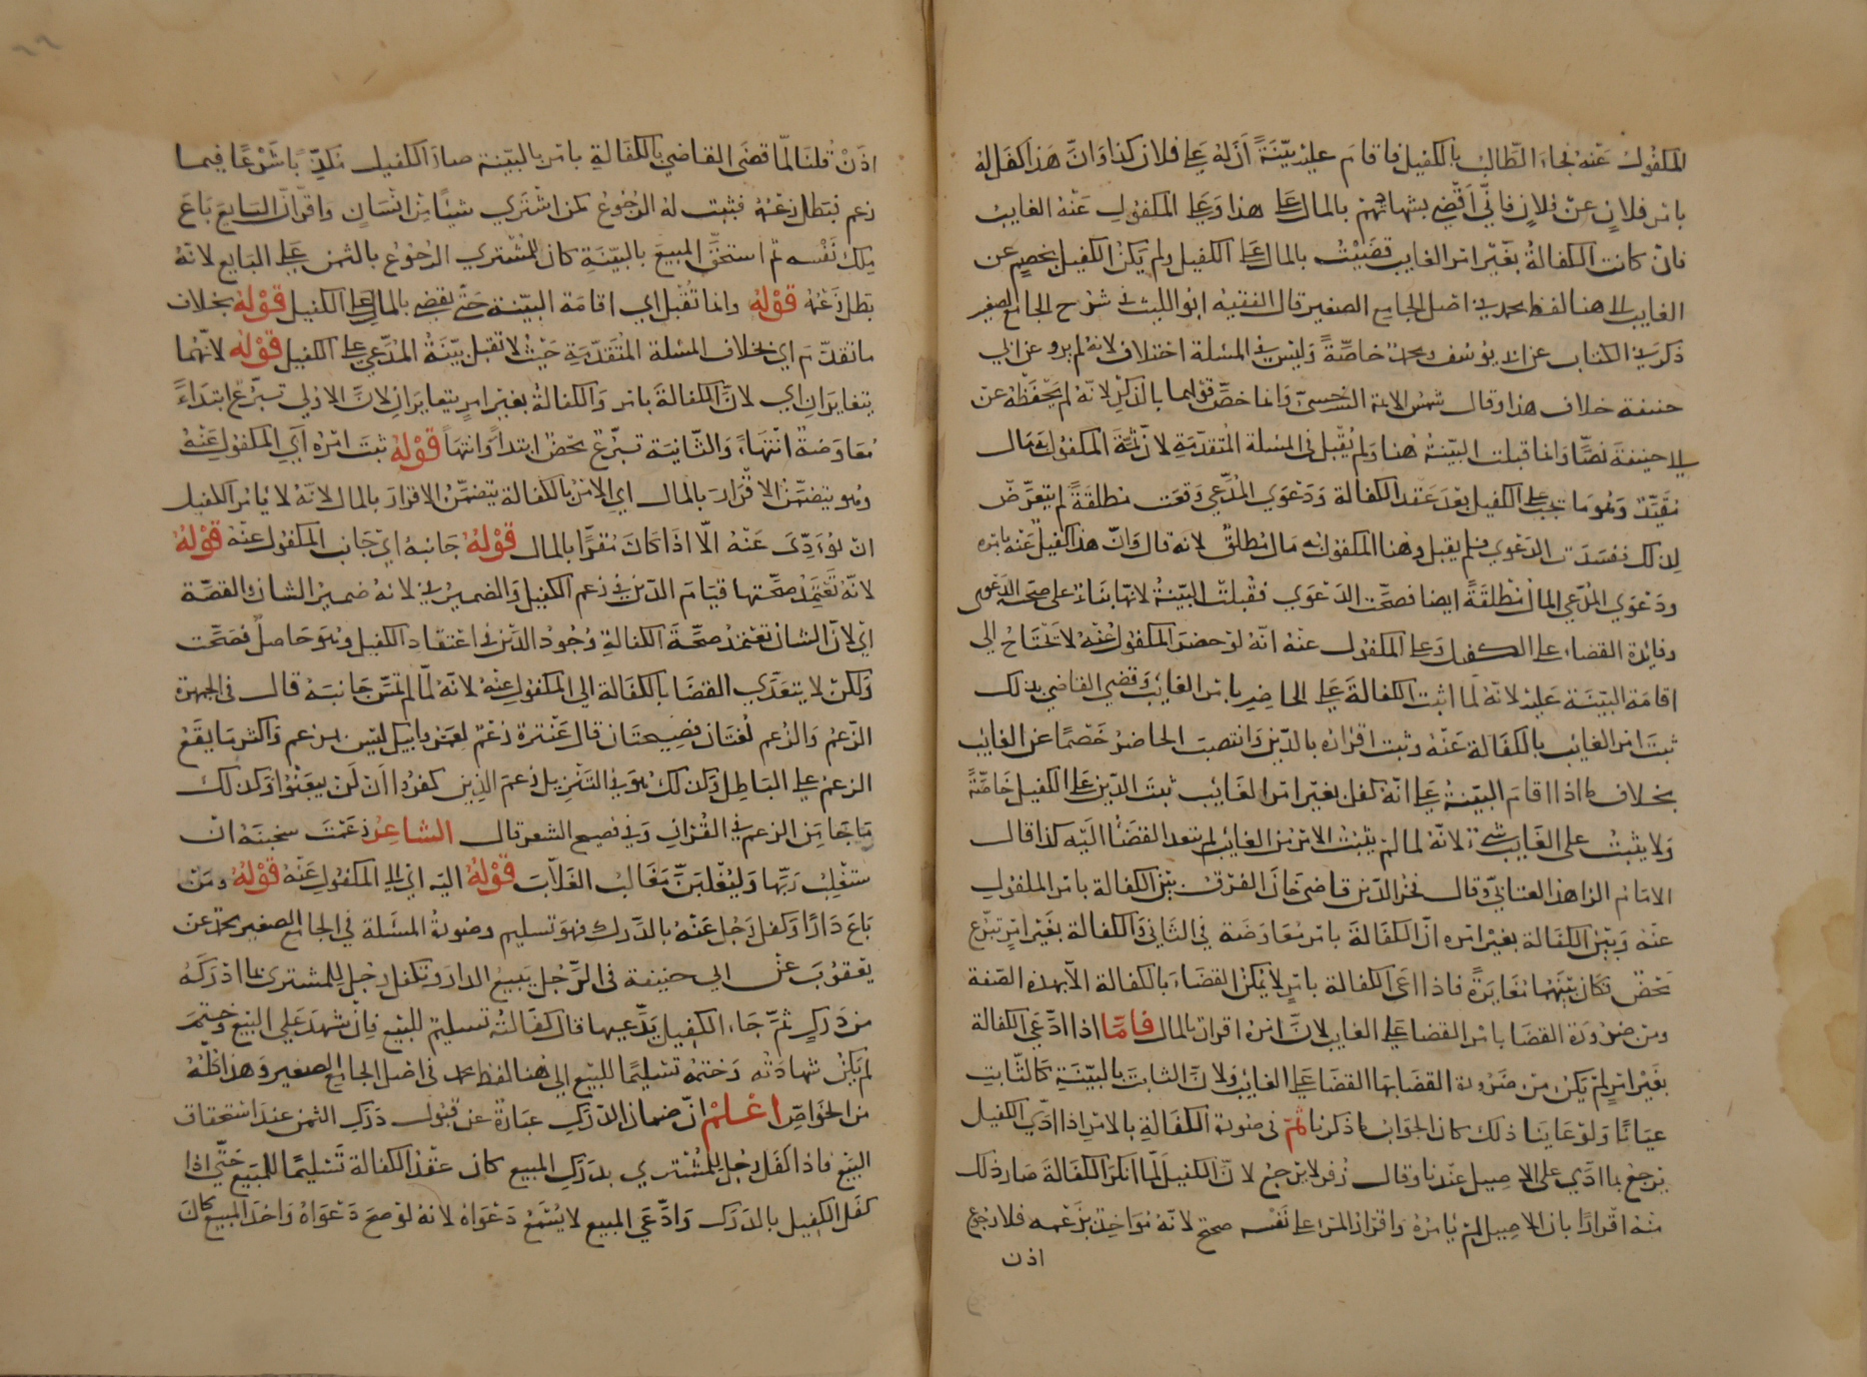 المكفول عنه فجاء الطالب بالكفيل فاقام عليه بيّنةً أن له على فلان كذا وانّ هذا كفل له
بامر فلان عن فلان فاني أقضي بشهادتهم بالمال على هذا وعلى المكفول عنه الغايب
فان كانت الكفالة بغير امر الغايب قضيت بالمال على الكفيل ولم يكن الكفيل بخصم عن
الغايب الى هنا لفظ محمد في اصل الجامع الصغير قال الفقيه ابو الليث في شرح الجامع الصغير
ذكر في الكتاب عن ابي يوسف ومحمد خاصّةً وليس في المسئلة اختلاف لانه لم يرو عن ابي
حنيفة خلاف هذا وقال شمس الايمة السرخسيّ وانما خصّ قولهما بالذكر لانّه لم يحفظه عن
ابي حنيفة نصًّا وانما قبلت البيّنة هنا ولم يُقبل في المسئلة المتقدّمة لان ثمّة المكفول به مال
مقيّد وهو ما يجب على الكفيل بعد عقد الكفالة ودعوى المدّعي وقعت مطلقةً لم يتعرّض
لذلك ففسدت الدعوى فلم يقبل وهنا المكفول به مال مطلق لانه قال وانّ هذا كفيل عنه بامره
ودعوى المدّعي المال مطلقةً ايضا فصحّت الدعوى فقبلت البيّنة لانّها بناء على صحة الدعوى
وفايدة القضاء على الكفيل وعلى المكفول عنه انّه لو حضر المكفول عنه لا يحتاج الى
اقامة البيّنة عليه لانّه لمّا اثبت الكفالة على الحاضر بامر الغايب وقضى القاضي بذلك
ثبت امر الغايب بالكفالة عنه وثبت اقراره بالدّين وانتصب الحاضر خصمًا عن الغايب
بخلاف ما اذا اقام البيّنة على انّه كفل بغير امر الغايب ثبت الدّين على الكفيل خاصّةً
ولا يثبت على الغايب شيء لانّه لما لم يثبت الامر من الغايب لم يتعد القضا اليه كذا قال
الامام الزاهد العتابيّ وقال فخر الدّين قاضي خان الفرق بين الكفالة بامر المكفول
عنه وبين الكفالة بغير امره انّ الكفالة بامر معاوضة في الثاني والكفالة بغير امر تبرّع
محض فكان بينهما مغايرةً فاذا ادعى الكفالة بامر لا يمكن القضاء بالكفالة الّا بهذه الصّفة
ومن ضرورة القضا بامر القضا على الغايب لانّ امره اقرار بالمال فامّا اذا ادّعى الكفالة
بغير امر لم يكن من ضرورة القضا بها القضا على الغايب ولانّ الثابت بالبيّنة كالثّابت
عيانًا ولو عاينا ذلك كان الجواب ما ذكرنا ثمّ في صورة الكفالة بالامر اذا ادّى الكفيل
يرجع بما ادّى على الاصيل عندنا وقال زفر لا يرجع لانّ الكفيل لمّا انكر الكفالة صار ذلك
منه اقرارًا بان الاصيل لم يامره واقرار المرء على نفسه صحيح لانّه مواخذ بزعمه فلا رجوع
اذن
اذن قلنا لمّا قضى القاضي بالكفالة بامر بالبيّنة صار الكفيل مكذّبًا شرعًا فيما
زعم فبطل زعمه فثبت له الرجوع كمن اشترى شيئًا من انسان واقرّ انّ البايع باع
ملك نفسه ثم استحقّ المبيع بالبيّنة كان للمشتري الرجوع بالثمن على البايع لانّه
بطل زعمه قوله وانما تقبل اي اقامة البيّنة حتّى يقضى بالمال على الكفيل قوله بخلاف
ما تقدّم اي بخلاف المسئلة المتقدّمة حيث لا تقبل بيّنة المدّعي على الكفيل قوله لانّهما
يتغايران اي لانّ الكفالة بامر والكفالة بغير امر يتغايران لانّ الاولى تبرّع ابتداءً
معاوضة انتهاءً والثّانية تبرّع محض ابتداءً وانتهاءً قوله ثبت امره اي المكفول عنه
وهو يتضمّن الاقرار بالمال اي الامر بالكفالة يتضمّن الاقرار بالمال لانّه لا يامر الكفيل
ان يؤدّى عنه الّا اذا كان مقرًّا بالمال قوله جانبه اي جانب المكفول عنه قوله
لانّه تعتمد صحّتها قيام الدّين في زعم الكفيل والضمير في لانه ضمير الشان والقصّة
اي لانّ الشان تعتمد صحّة الكفالة وجود الدّين في اعتقاد الكفيل وهو حاصل فصحّت
ولكن لا يتعدّى القضا بالكفالة الى المكفول عنه لانّه لمّا لم تمسّ جانبه قال في الجمهرة
الزّعم والزُعم لغتان فصيحتان قال عنترة زعم لعمر ابيك ليس بزعم واكثر ما يقع
الزعم على الباطل وكذلك هو في التنزيل زعم الذين كفروا ان لن يبعثوا وكذلك
ما جا من الزعم في القران وفي فصيح الشعر قال الشاعر زعمت سخينة ان
ستغلب ربّها وليغلبنّ مغالب الغلّاب قوله اليه اي الى المكفول عنه قوله ومن
باع دارًا وكفل رجل عنه بالدّرك فهو تسليم وصورة المسئلة في الجامع الصغير محمد عن
يعقوب عن ابي حنيفة في الرّجل يبيع الدار وتكفل رجل للمشتري بما ادركه
من دركٍ ثمّ جاء الكفيل يدّعيها قال كفالته تسليم للبيع فان شهد على البيع وختم
لم يكن شهادته وختمه تسليمًا للبيع الى هنا لفظ محمد في اصل الجامع الصغير وهذا كلّه
من الخواصّ اعلم انّ ضمان الدّرك عبارة عن قبول درك الثمن عند استحقاق
البيع فاذا كفل رجل للمشتري بدرك المبيع كان عقد الكفالة تسليمًا للمبيع حتّى اذا
كفل الكفيل بالدرك وادّعى المبيع لا يُسمع دعواه لانه لو صح دعواه واخذ المبيع كان